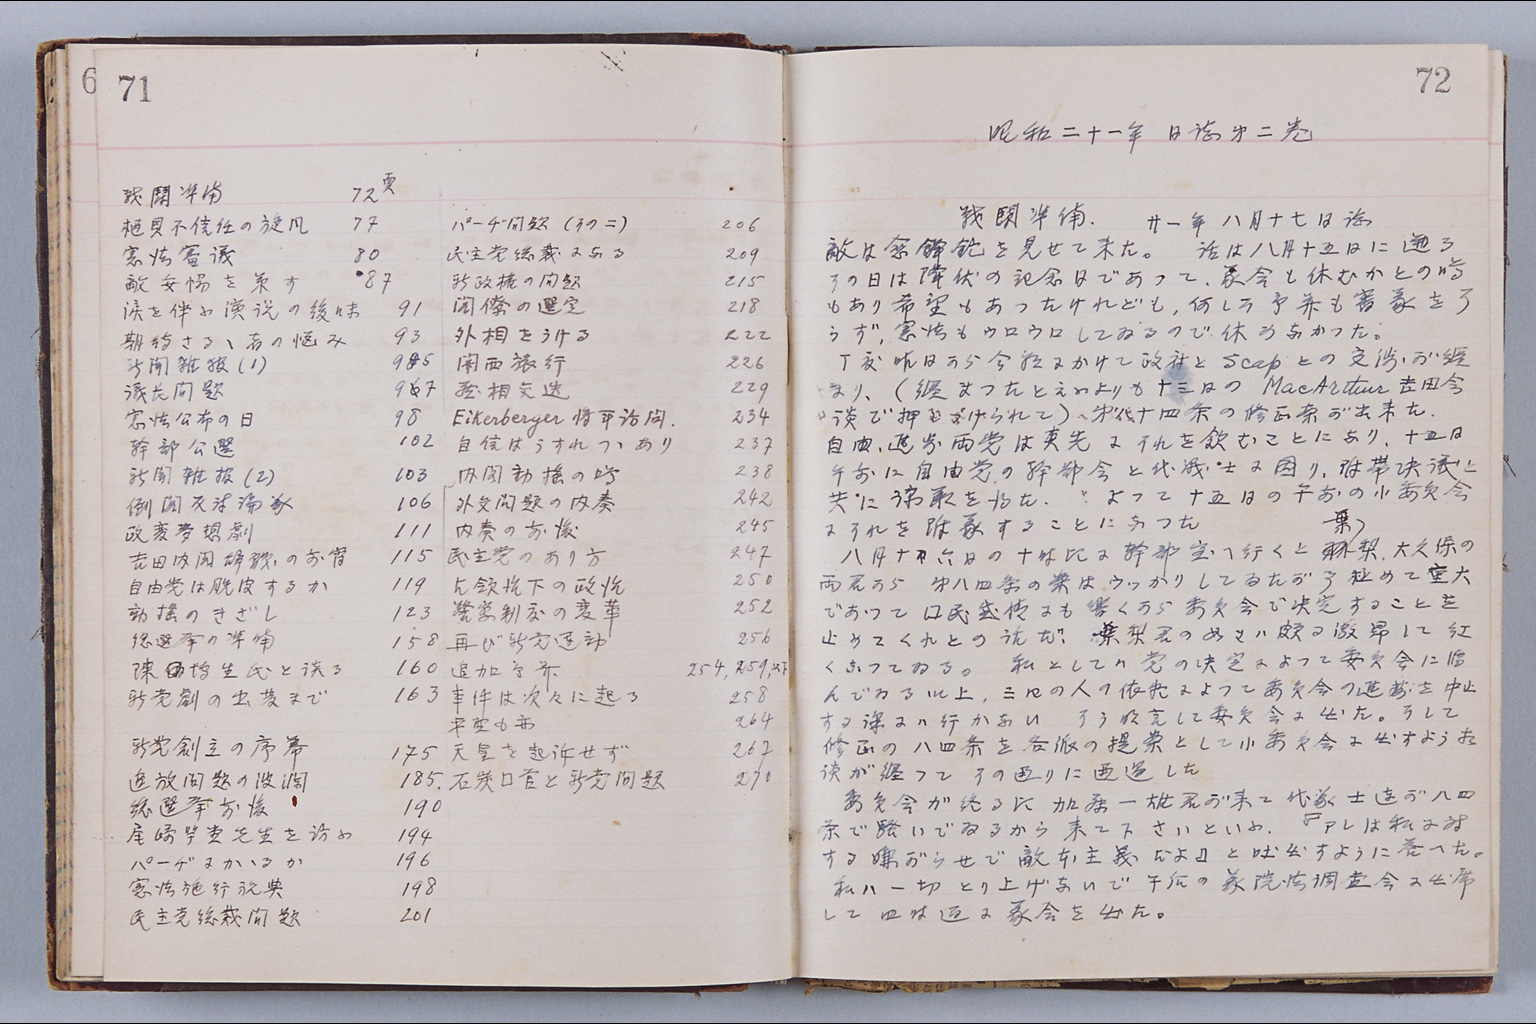 6 71
戦闘準備 72頁
樋貝不信任の旋風 77
憲法審議 80
敵妥協を策す 87
涙を伴ふ演説の後味 91
期待さるゝ者の悩み 93
新聞雑報(1) 95
議長問題 97
憲法公布の日 98
幹部公選 102
新聞雑報(2) 103
倒閣反対論 106
政変夢想劇 111
吉田内閣 の前宵 115
自由党は脱皮するか 119
動揺のきざし 123
総選挙の準備 158
氏と語る 160
新党創の出発まで 163
新党創立の序幕 175
追放問題の波瀾 185.
総選挙前後 190
尾崎咢堂先生を訪ふ 194
パーヂにかゝるか 196
憲法施行祝典 198
民主党総裁問題 201
パーヂ問題(その二) 206
民主党総裁になる 209
新政権の問題 215
閣僚の選定 218
外相をうける 222
関西旅行 226
蔵相交迭 229
Eikerberger将軍訪問. 234
自信はうすれつゝあり 237
内閣動揺の時 238
外交問題の内奏 242
内奏の前後 245
民主党のあり方 247
占領治下の政治 250
警察制度の変革 252
再び新党運動 256
追加予算 254, 259, 以下
事件は次々に起る 258
264
天皇を起訴せず 267
石炭口管と新党問題 270
72
昭和二十一年 日誌第二巻
戦闘準備. 廿一年八月十七日誌
敵は愈鋒鋩を見せて来た。 話は八月十五日に遡る
その日は降伏の記念日であって、議会も休むかとの時
もあり希望もあったけれども,何しろ予算も審議を了
らず,憲法もウロウロしてゐるので休めなかった。
丁度昨日から今朝にかけて政府とScapとの交渉が纏
まり、(纏まったと云ふよりも十三日のMacArthur吉田会
談で押しつけられて)、第八十四条の修正案が出来た.
自由、進歩両党は真先にそれを飲むことになり、十五日
午前に自由党の幹部会と代議士会に図り,附帯決議と
共に承認を得た. よって十五日の午前の小委員会
にそれを附議することになった
八月十六日の十時頃に幹部室へ行くと 葉梨、大久保の
両君から 第八四条の案はウッカリしてゐたが了極めて重大
であって 口民感情にも響くから委員会で決定することを
止めてくれとの話だ. 葉梨君の如きハ頗る激昂して紅
くなってゐる。 私としてハ党の決定によって委員会に臨
んでゐる以上, 二三の人の依頼によって委員会の進行を中止
する譯にハ行かない そう教言して委員会に出た。そして
修正の八四条を各派の提案として小委員会に出すような
談が纏って その通りに通過した
委員会が終る頃 加藤一雄君が来て 代議士達が八四
条で騒いでゐるから来て下さいといふ. 『アレは私に対
する嫌がらせで敵本主義だよ』と吐出すように答へた。
私ハ一切とり上げないで午后の議院法調査会に出席
して四時過に議会を出た。